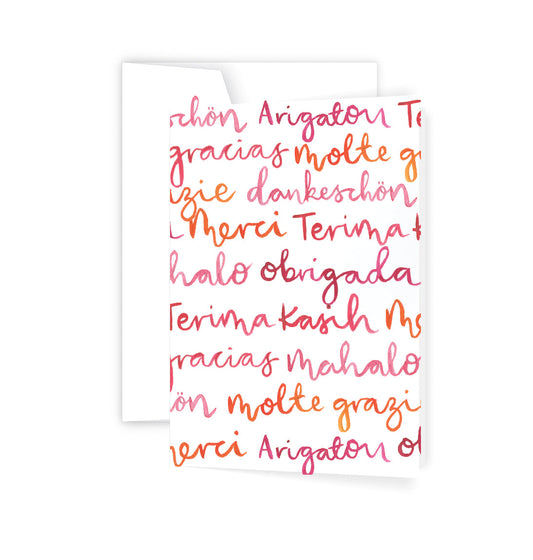 chön Arigatou Te
gracias molte gr
azie dankeschön
Merci Terima K
mahalo obrigada
Terima Kasih Me
gracias mahalo
ön molte grazie
merci Arigatou ob